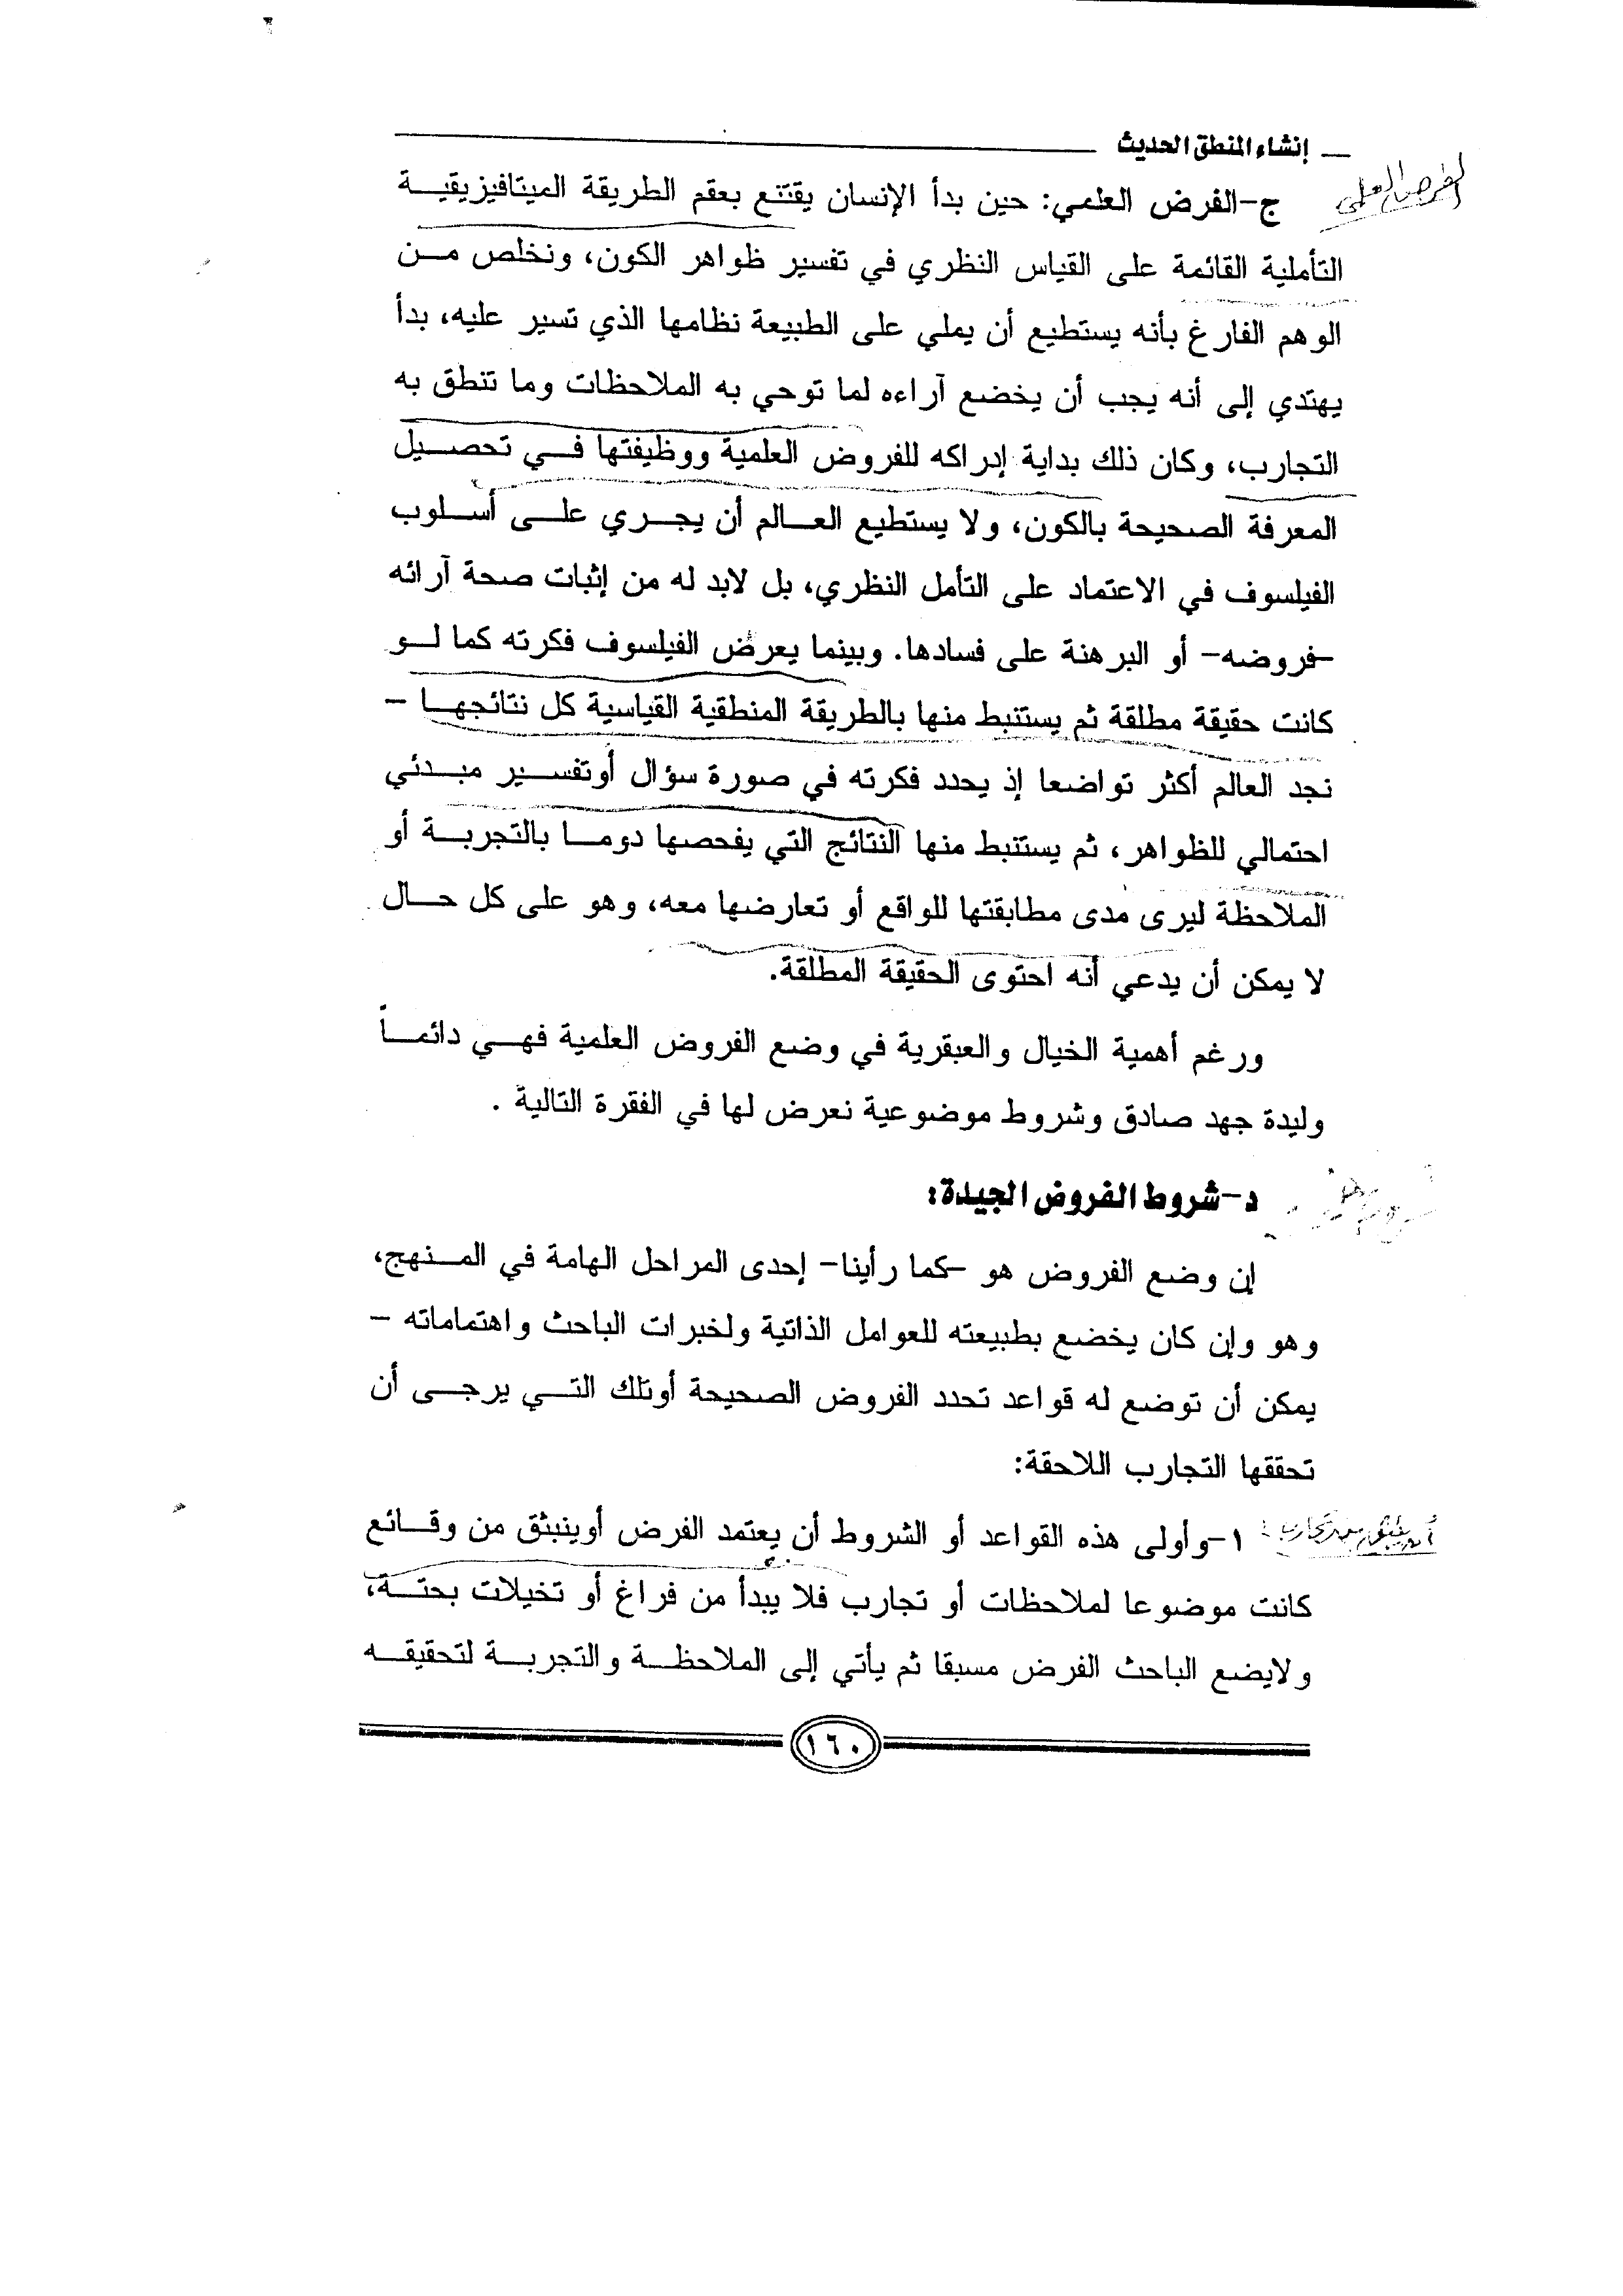 إنشاء المنطق الحديث
الفرض العلمي
ج-الفرض العلمي: حين بدأ الإنسان يقتنع بعقم الطريقة الميتافيزيقية
التأملية القائمة على القياس النظري في تفسير ظواهر الكون، ونخلص من
الوهم الفارغ بأنه يستطيع أن يملي على الطبيعة نظامها الذي تسير عليه، بدأ
يهتدي إلى أنه يجب أن يخضع آراءه لما توحي به الملاحظات وما تنطق به
التجارب، وكان ذلك بداية إدراكه للفروض العلمية ووظيفتها في تحصيل
المعرفة الصحيحة بالكون، ولا يستطيع العالم أن يجري على أسلوب
الفيلسوف في الاعتماد على التأمل النظري، بل لابد له من إثبات صحة آرائه
-فروضه- أو البرهنة على فسادها. وبينما يعرض الفيلسوف فكرته كما لو
كانت حقيقة مطلقة ثم يستنبط منها بالطريقة المنطقية القياسية كل نتائجها -
نجد العالم أكثر تواضعا إذ يحدد فكرته في صورة سؤال أوتفسير مبدئي
احتمالي للظواهر، ثم يستنبط منها النتائج التي يفحصها دوما بالتجربة أو
الملاحظة ليرى مدى مطابقتها للواقع أو تعارضها معه، وهو على كل حال
لا يمكن أن يدعي أنه احتوى الحقيقة المطلقة.
ورغم أهمية الخيال والعبقرية في وضع الفروض العلمية فهي دائماً
وليدة جهد صادق وشروط موضوعية نعرض لها في الفقرة التالية .
د-شروط الفروض الجيدة:
إن وضع الفروض هو -كما رأينا- إحدى المراحل الهامة في المنهج،
وهو وإن كان يخضع بطبيعته للعوامل الذاتية ولخبرات الباحث واهتماماته -
يمكن أن توضع له قواعد تحدد الفروض الصحيحة أوتلك التي يرجى أن
تحققها التجارب اللاحقة:
١-وأولى هذه القواعد أو الشروط أن يعتمد الفرض أوينبثق من وقائع
كانت موضوعا لملاحظات أو تجارب فلا يبدأ من فراغ أو تخيلات بحتة،
ولايضع الباحث الفرض مسبقا ثم يأتي إلى الملاحظة والتجربة لتحقيقه
١٦٠